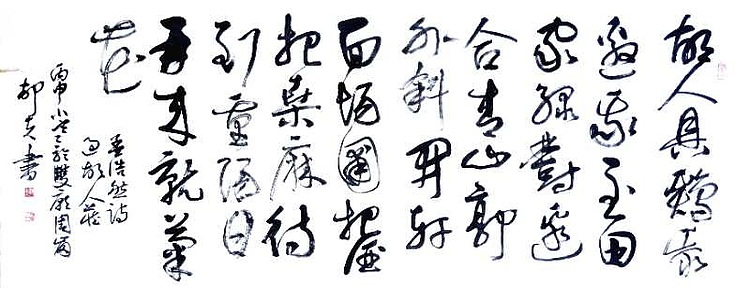 故人具鷄黍
邀我至田
家綠樹邊
合青山郭
外斜開軒
面場圃把酒
話桑麻待
到重陽日
再來就菊
花
孟浩然詩
過故人莊
丙申小雪於雙
書